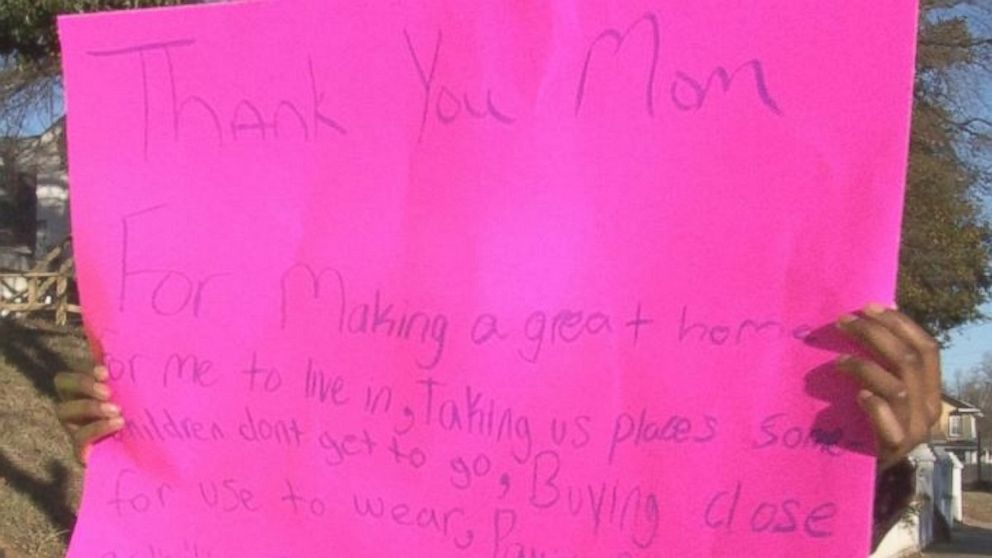 Thank You Mom
For Making a great home
for me to live in, Taking us places some
children dont get to go, Buying close
for use to wear,